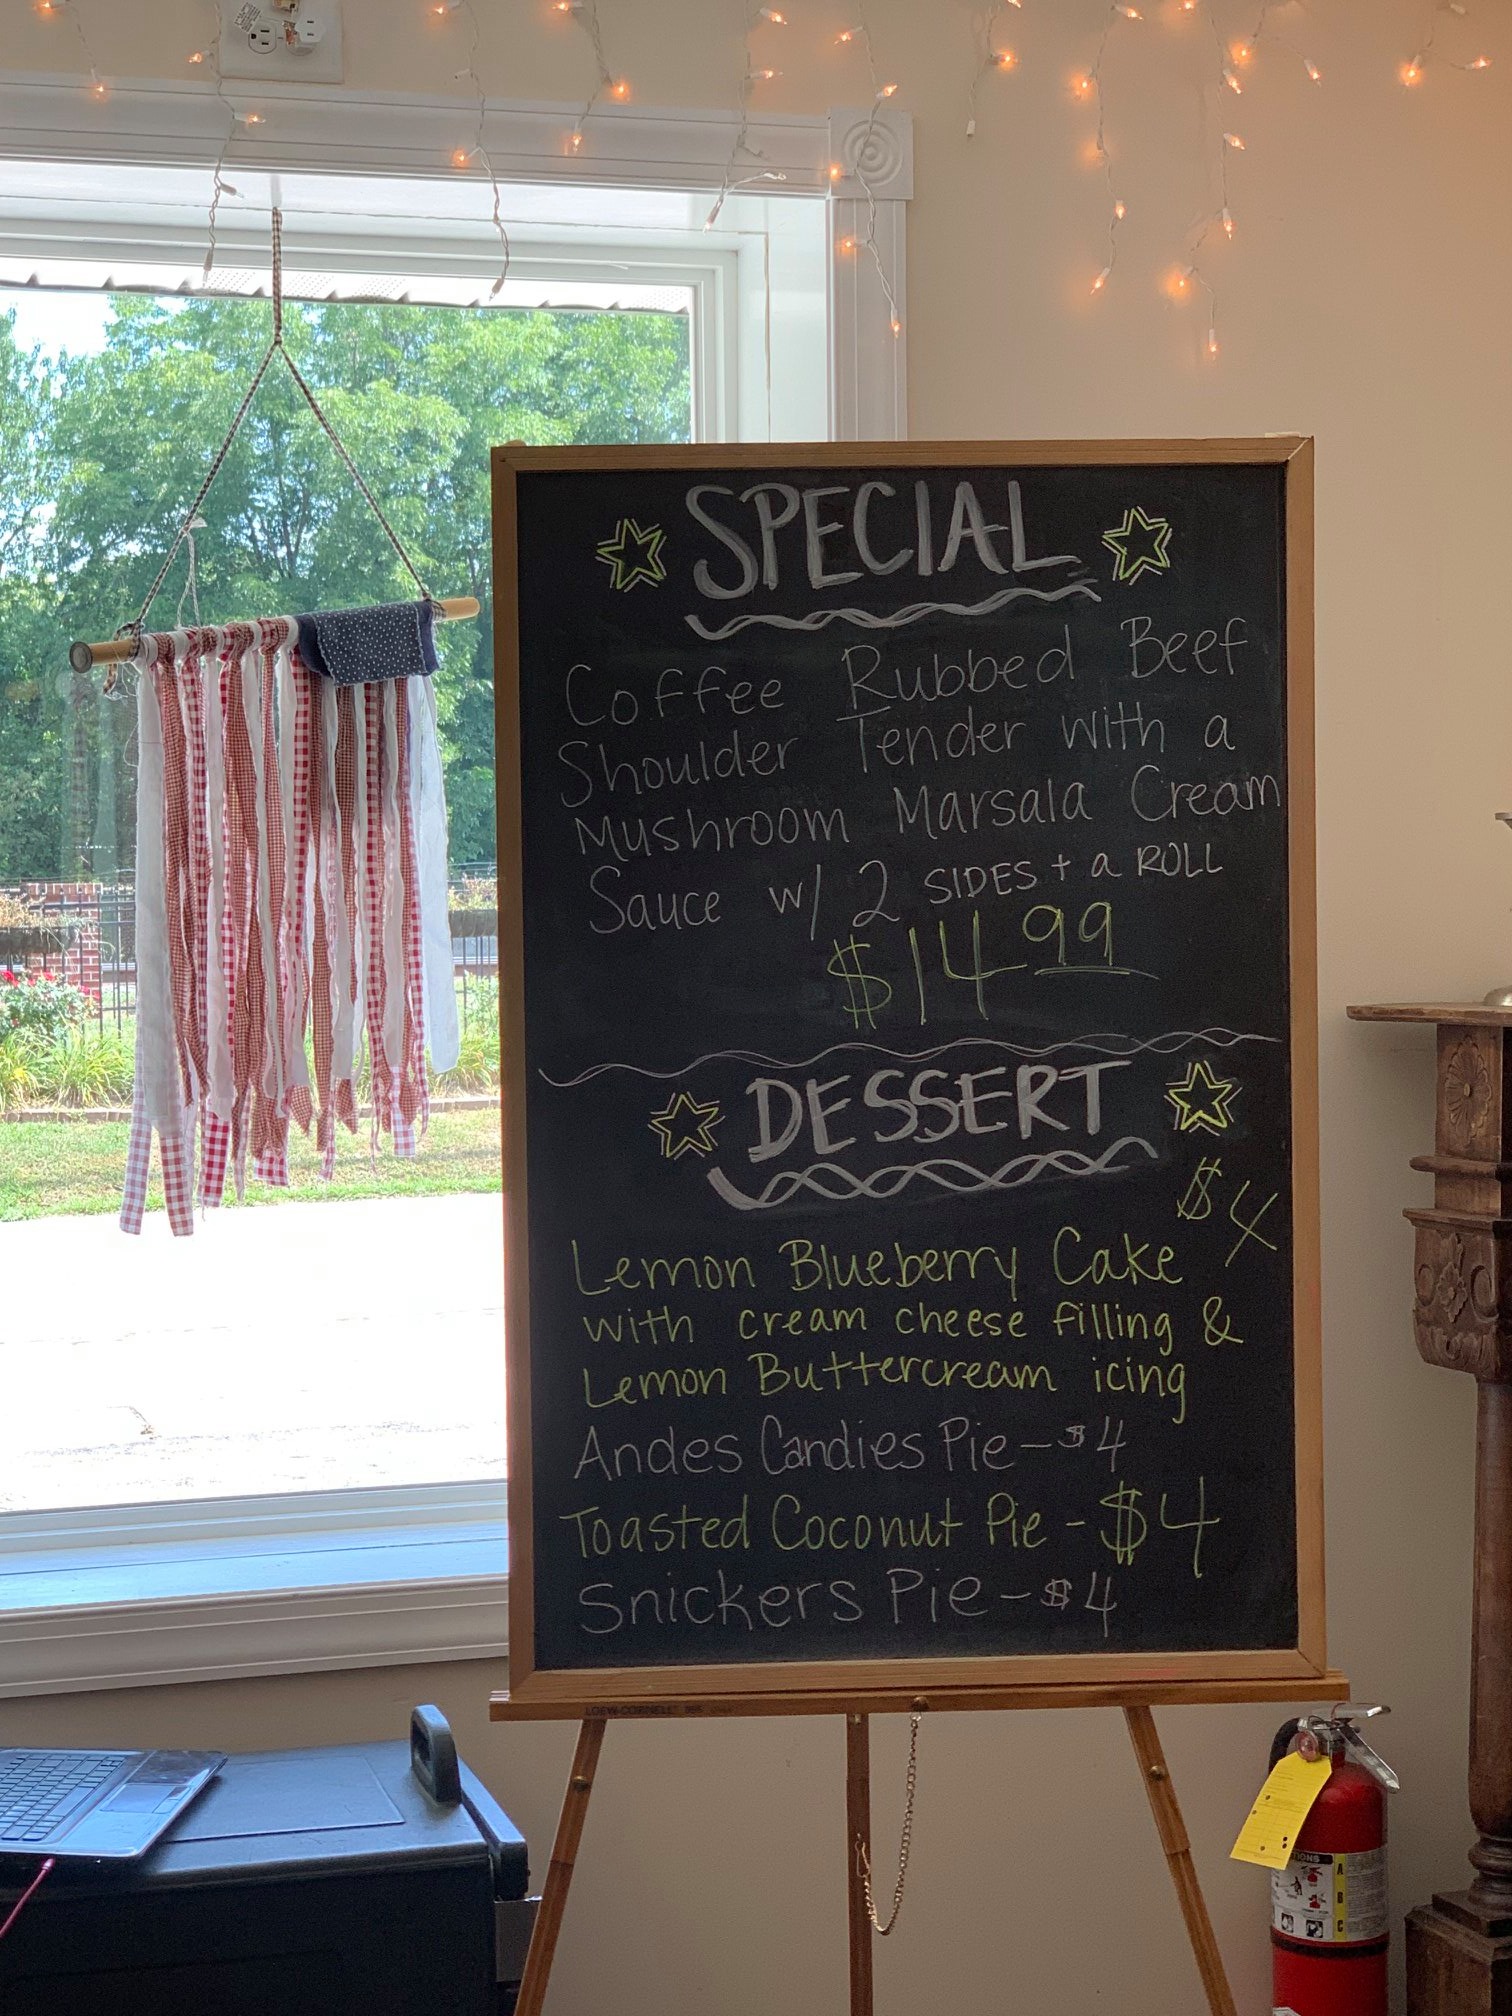 SPECIAL
Coffee Rubbed Beef
Shoulder Tender with a
Mushroom Marsala Cream
Sauce w/ 2 SIDES + a ROLL
$14 99
DESSERT
$4
Lemon Blueberry Cake
with cream cheese filling &
Lemon Buttercream icing
Andes Candies Pie - $4
Toasted Coconut Pie - $4
Snickers Pie - $4
LOEW-CORNELL
A
B
C